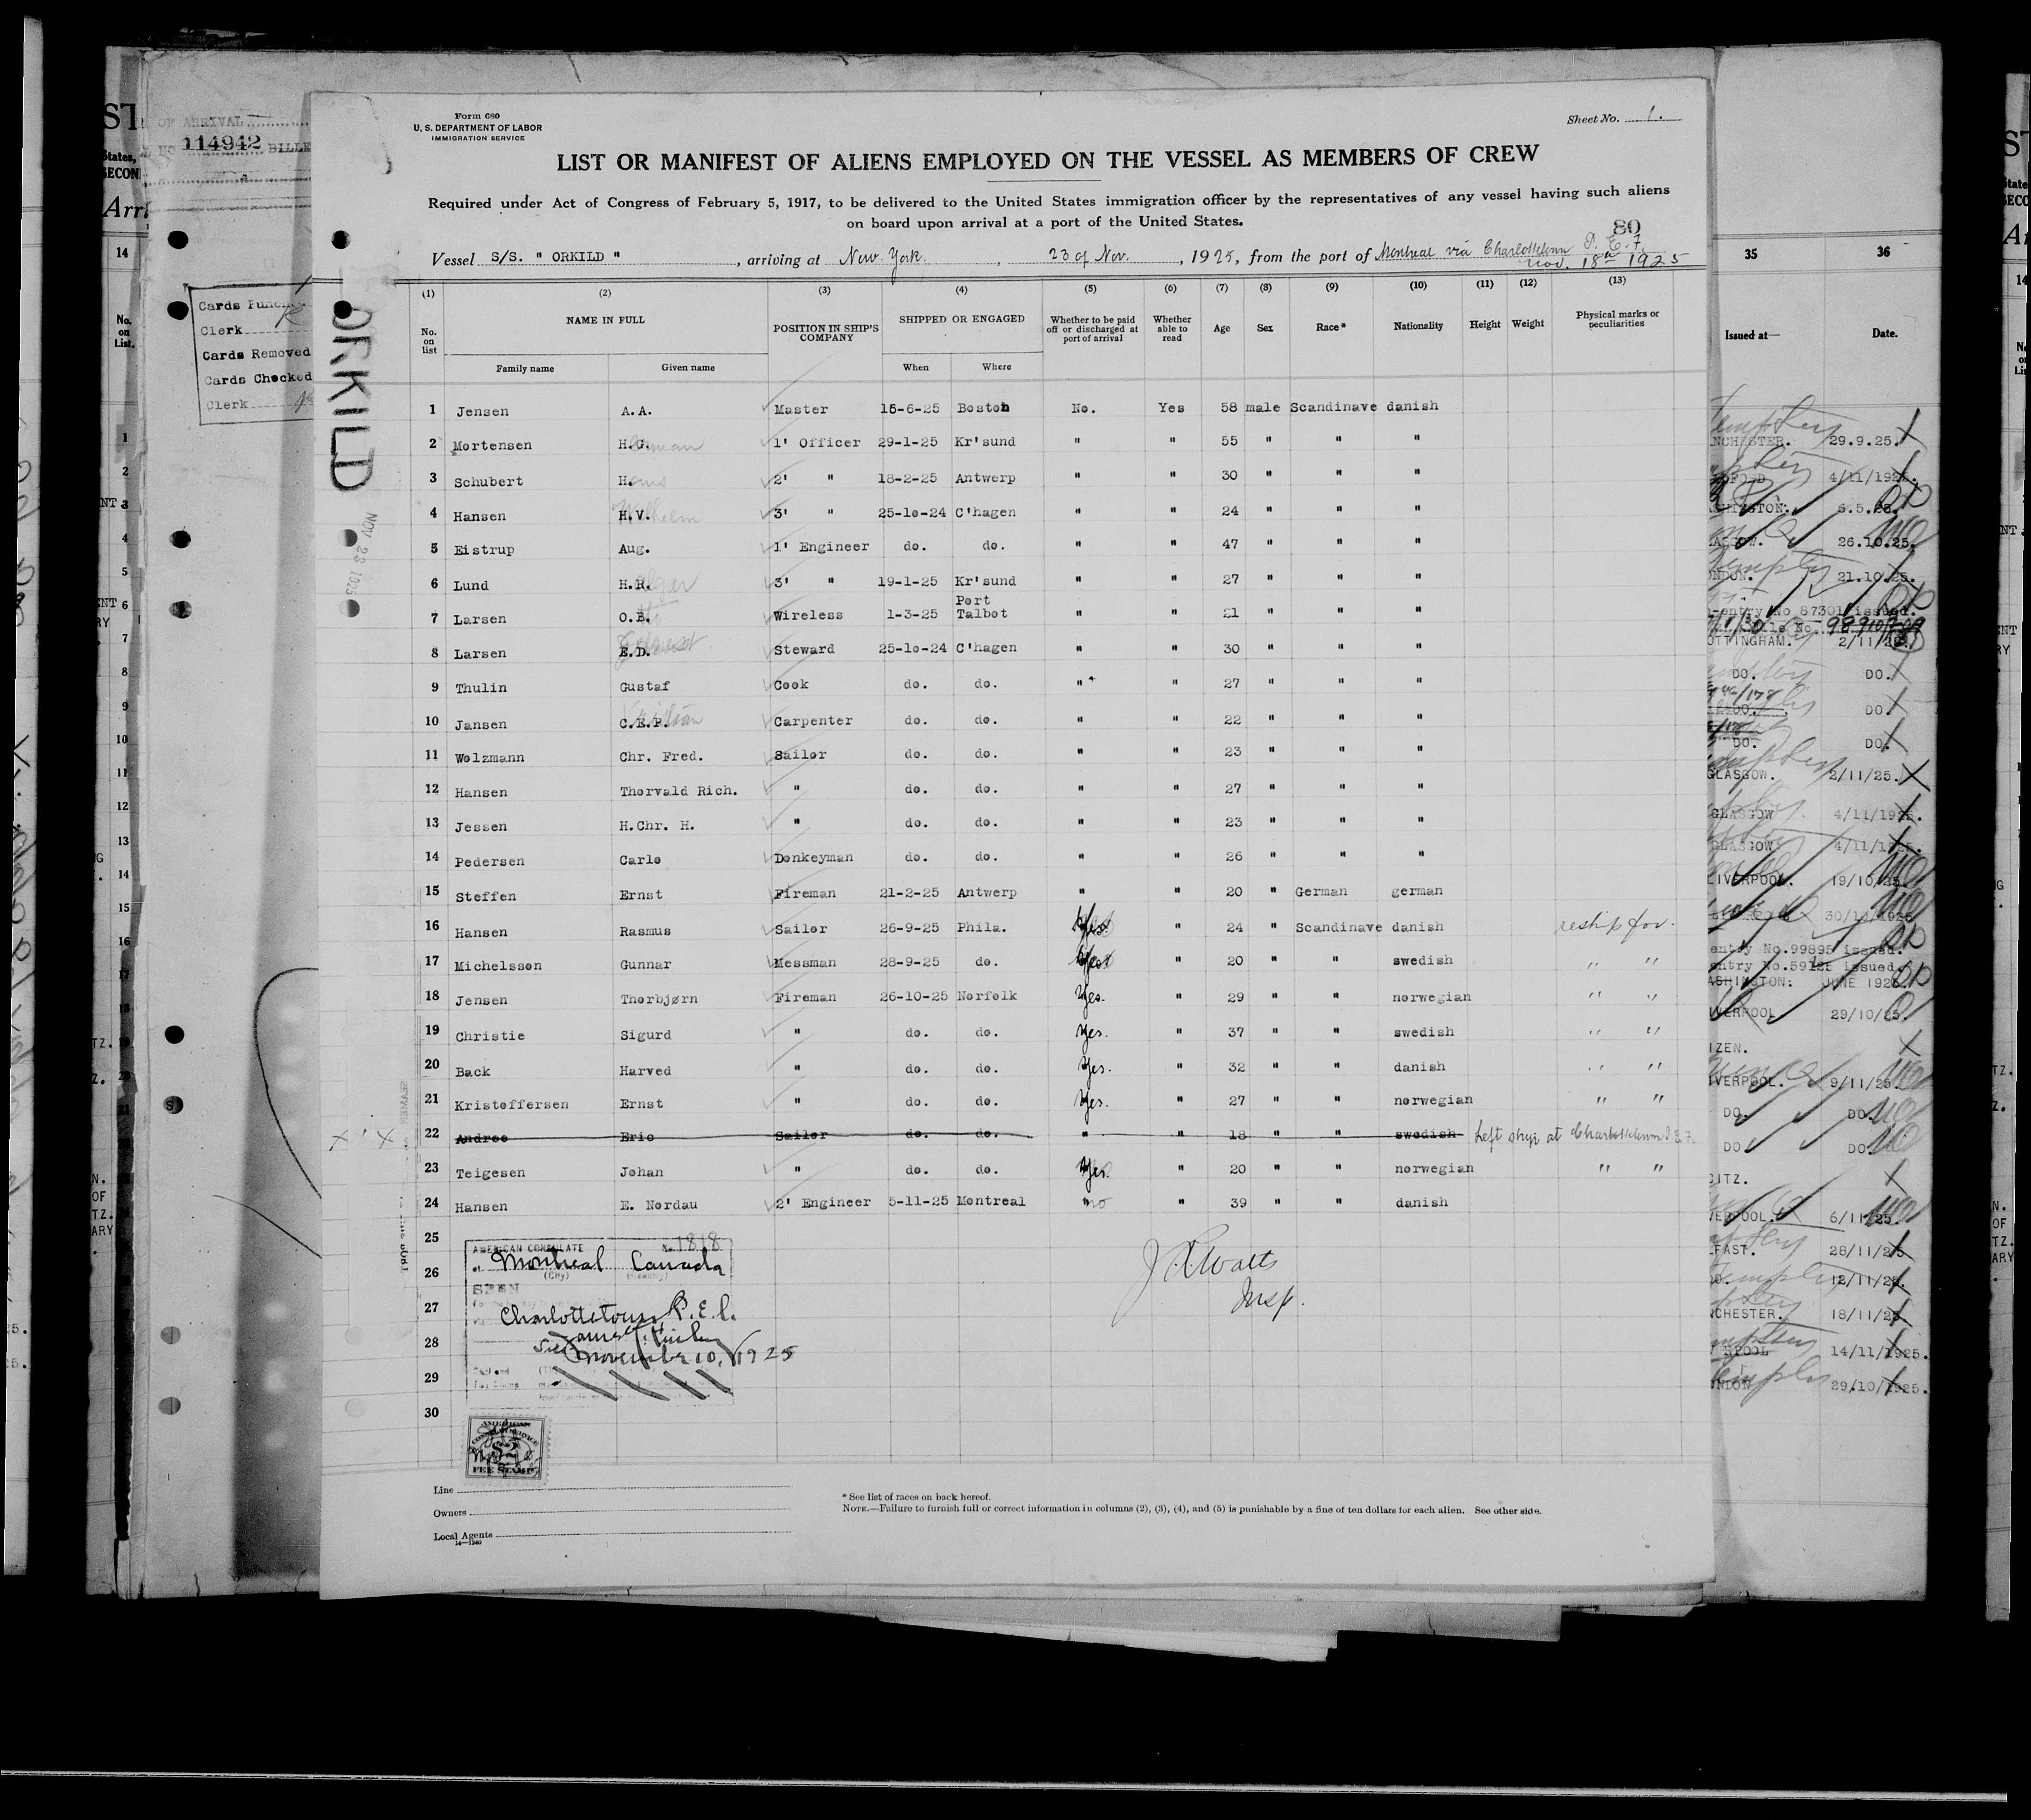 Form 680
U. S. DEPARTMENT OF LABOR
IMMIGRATION SERVICE
Sheet No. 1.
LIST OR MANIFEST OF ALIENS EMPLOYED ON THE VESSEL AS MEMBERS OF CREW
Required under Act of Congress of February 5, 1917, to be delivered to the United States immigration officer by the representatives of any vessel having such aliens
on board upon arrival at a port of the United States.
80
Vessel S/S. " ORKILD " , arriving at New York. , 23 of Nov. , 1925, from the port of Montreal via Charlottetown
Nov. 18 1925
(1) (2) (3) (4) (5) (6) (7) (8) (9) (10) (11) (12) (13)
No. on list NAME IN FULL POSITION IN SHIP'S COMPANY SHIPPED OR ENGAGED Whether to be paid off or discharged at port of arrival Whether able to read Age Sex Race* Nationality Height Weight Physical marks or peculiarities
Family name Given name When Where
1 Jensen A.A. Master 15-6-25 Boston No. Yes 58 male Scandinave danish
2 Mortensen H.G. 1' Officer 29-1-25 Kr'sund " " 55 " " "
3 Schubert H. 2' " 18-2-25 Antwerp " " 30 " " "
4 Hansen H.V. 3' " 25-10-24 C'hagen " " 24 " " "
5 Eistrup Aug. 1' Engineer do. do. " " 47 " " "
6 Lund H.R. 3' " 19-1-25 Kr'sund " " 27 " " "
7 Larsen O.B. Wireless 1-3-25 Port Talbot " " 21 " " "
8 Larsen E.D. Steward 25-10-24 C'hagen " " 30 " " "
9 Thulin Gustaf Cook do. do. " " 27 " " "
10 Jansen C.E.P. Carpenter do. do. " " 22 " " "
11 Wolzmann Chr. Fred. Sailor do. do. " " 23 " " "
12 Hansen Thorvald Rich. " do. do. " " 27 " " "
13 Jessen H.Chr. H. " do. do. " " 23 " " "
14 Pedersen Carlo Donkeyman do. do. " " 26 " " "
15 Steffen Ernst Fireman 21-2-25 Antwerp " " 20 " German german
16 Hansen Rasmus Sailor 26-9-25 Phila. Yes " 24 " Scandinave danish reship for.
17 Michelsson Gunnar Messman 28-9-25 do. Yes " 20 " " swedish " "
18 Jensen Thorbjørn Fireman 26-10-25 Norfolk Yes. " 29 " " norwegian " "
19 Christie Sigurd " do. do. Yes. " 37 " " swedish " "
20 Back Harved " do. do. Yes. " 32 " " danish " "
21 Kristoffersen Ernst " do. do. Yes. " 27 " " norwegian " "
22 Andree Eric Sailor do. do. " " 18 " " swedish Left ship at Charlottetown
23 Teigesen Johan " do. do. Yes. " 20 " " norwegian " "
24 Hansen E. Nordau 2' Engineer 5-11-25 Montreal no " 39 " " danish
25
26
27
28
29
30
AMERICAN CONSULATE No. 1818
at Montreal Canada
(City) (Country)
SEEN
Charlottetown P.E.I.
November 10, 1925
AMERICAN
$2
FEE STAMP
Watts
Insp.
Line
Owners
Local Agents
14—1240
* See list of races on back hereof.
NOTE.—Failure to furnish full or correct information in columns (2), (3), (4), and (5) is punishable by a fine of ten dollars for each alien. See other side.
ORKILD
NOV 23 1925
OF ARRIVAL
114942
Cards Punched
Clerk
Cards Removed
Cards Checked
Clerk
35 36
Issued at— Date.
29.9.25.
4/11/1925.
26.10.25.
21.10.25.
DO. DO.
DO.
DO. DO.
GLASGOW. 2/11/25.
GLASGOW 4/11/1925.
GLASGOW 4/11/1925.
LIVERPOOL. 19/10/25.
30/10/1925
entry No.99895 issued.
entry No.59125 issued.
29/10/25.
9/11/25.
DO. DO.
DO DO.
6/11/25.
28/11/25
12/11/25.
18/11/25
14/11/1925.
29/10/1925.